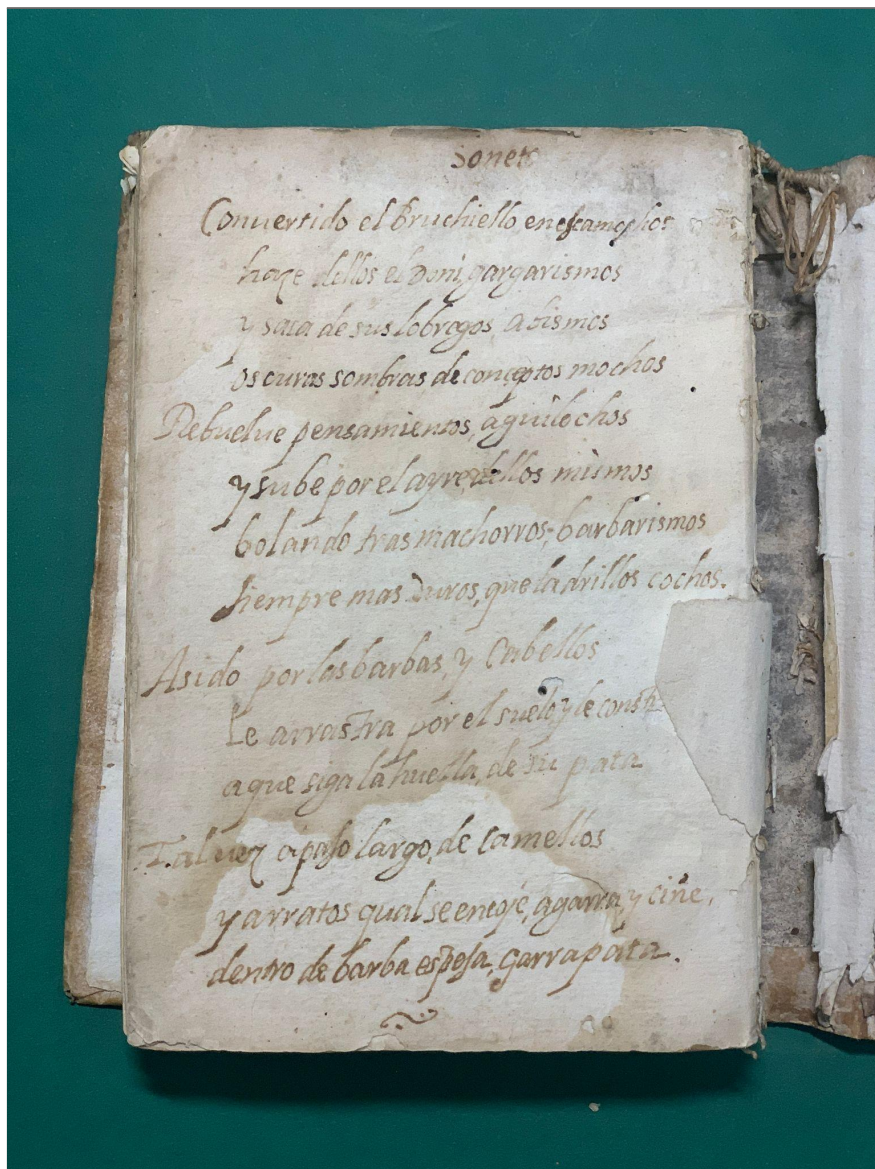 Soneto
Convertido el Bruchiello en escamochos
haze dellos el Doni, gargarismos
y saca de sus lobregos, abismos
oscuras sombras de conceptos mochos
Rebuelve pensamientos, aguilochos
y sube por el ayre dellos mismos
bolando tras machorros, barbarismos
siempre mas Duros, que ladrillos cochos.
Asido por las barbas, y Cabellos
Le arrastra por el suelo y le
a que siga la huella, de su pata
Tal vez a paso largo, de Camellos
y arratos qual se encoje, agarra, y ciñe,
dentro de barba espesa, garrapata.